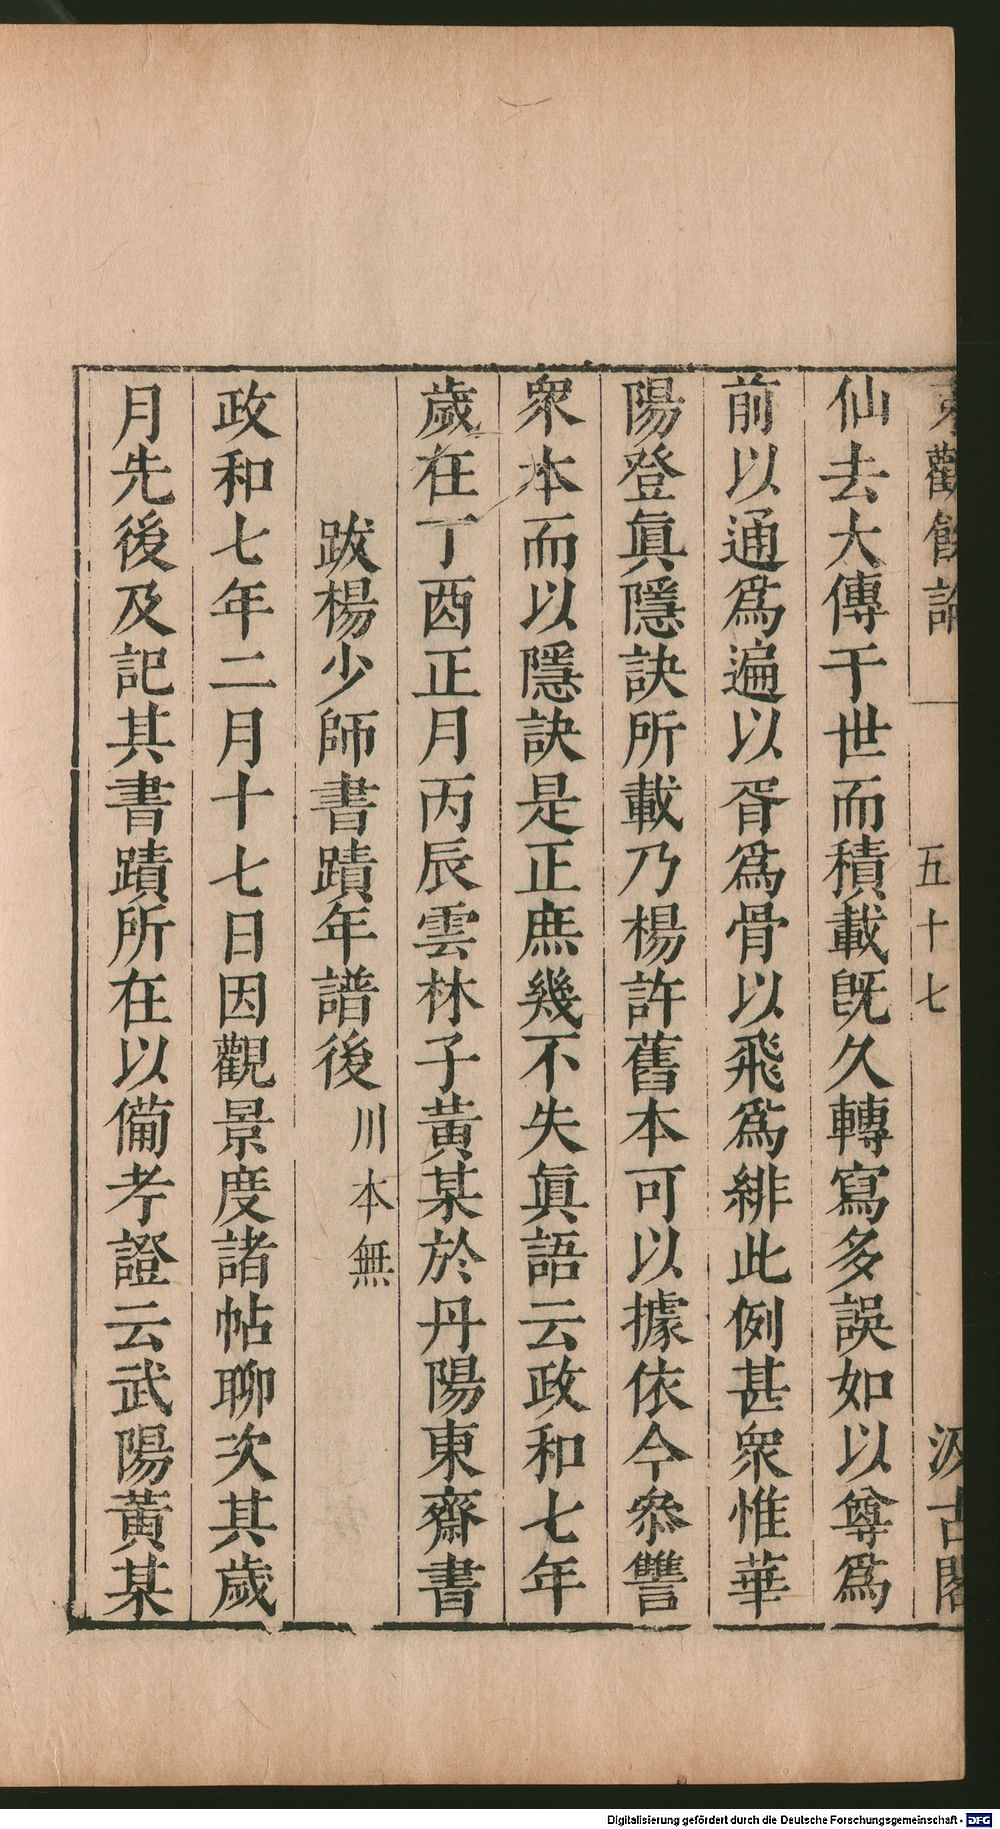 東觀餘論 一 五十七 汲古閣
仙去大傳于世而積載旣久轉寫多誤如以尊爲
前以通爲遍以胥爲骨以飛爲緋此例甚衆惟華
陽登眞隱訣所載乃楊許舊本可以據依今叅讐
衆本而以隱訣是正庶幾不失眞語云政和七年
歲在丁酉正月丙辰雲林子黃某於丹陽東齋書
跋楊少師書蹟年譜後 川本無
政和七年二月十七日因觀景度諸帖聊次其歲
月先後及記其書蹟所在以備考證云武陽黃某
Digitalisierung gefördert durch die Deutsche Forschungsgemeinschaft - DFG